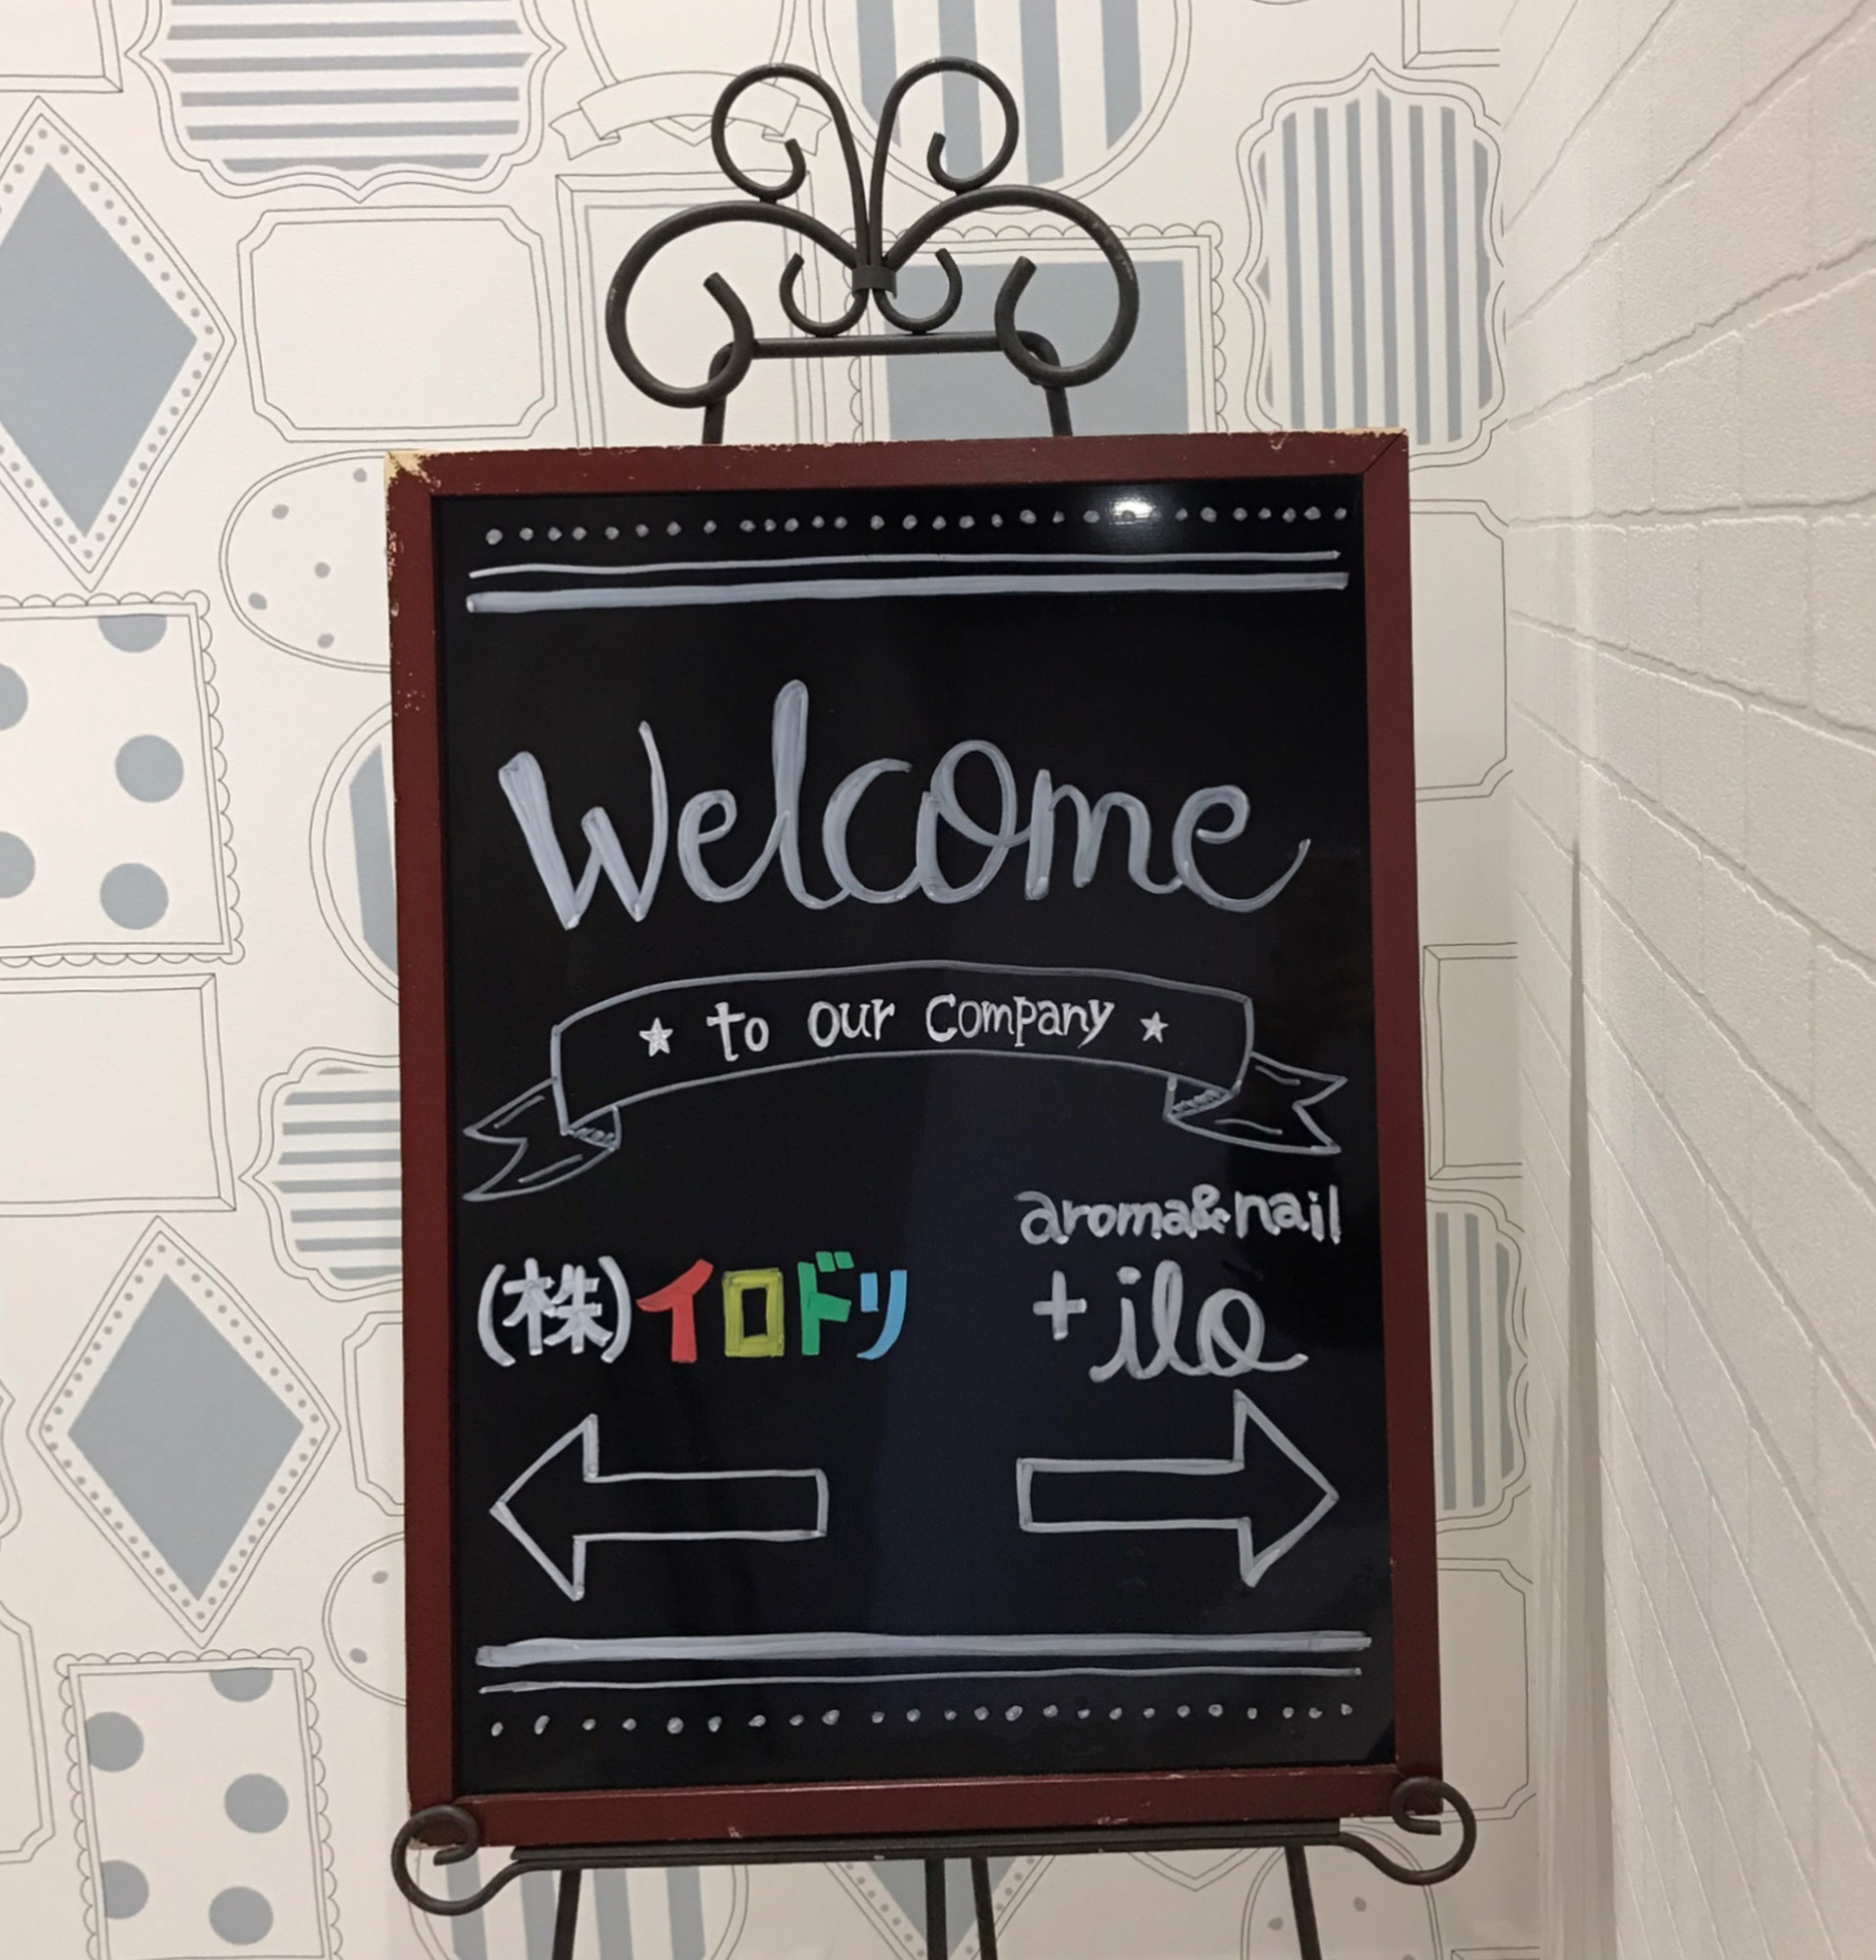 Welcome
★ to our Company ★
(株)イロドリ
aroma&nail
+ilo